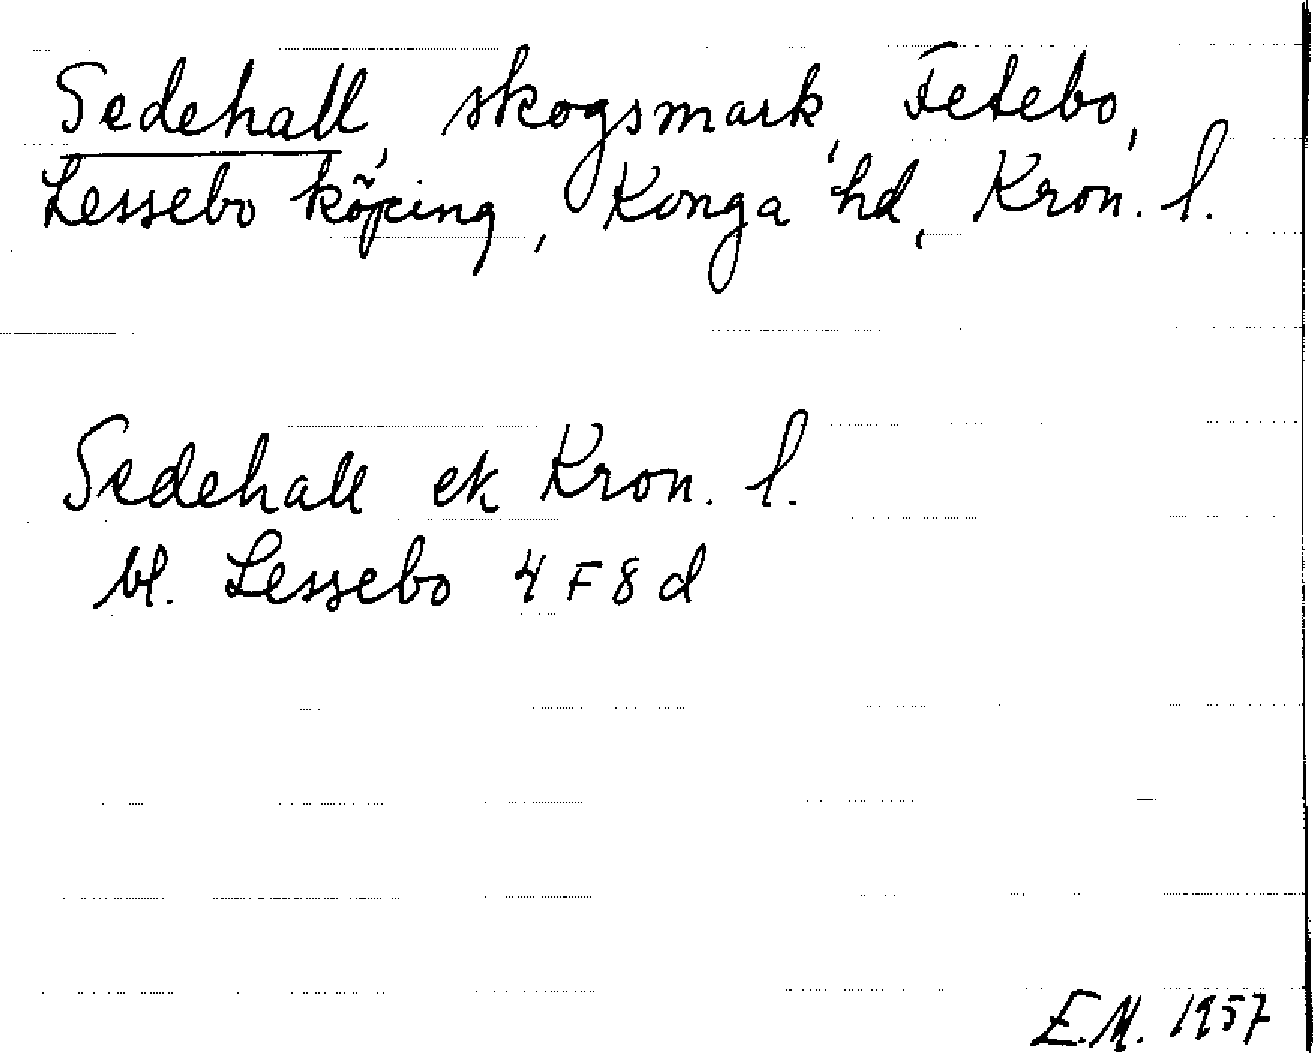 Sedehall, skogsmark, Fetebo,
Lessebo köping, Konga hd, Kron. l.
Sedehall ek Kron. l.
bl. Lessebo 4 F 8 d
E.M. 1957